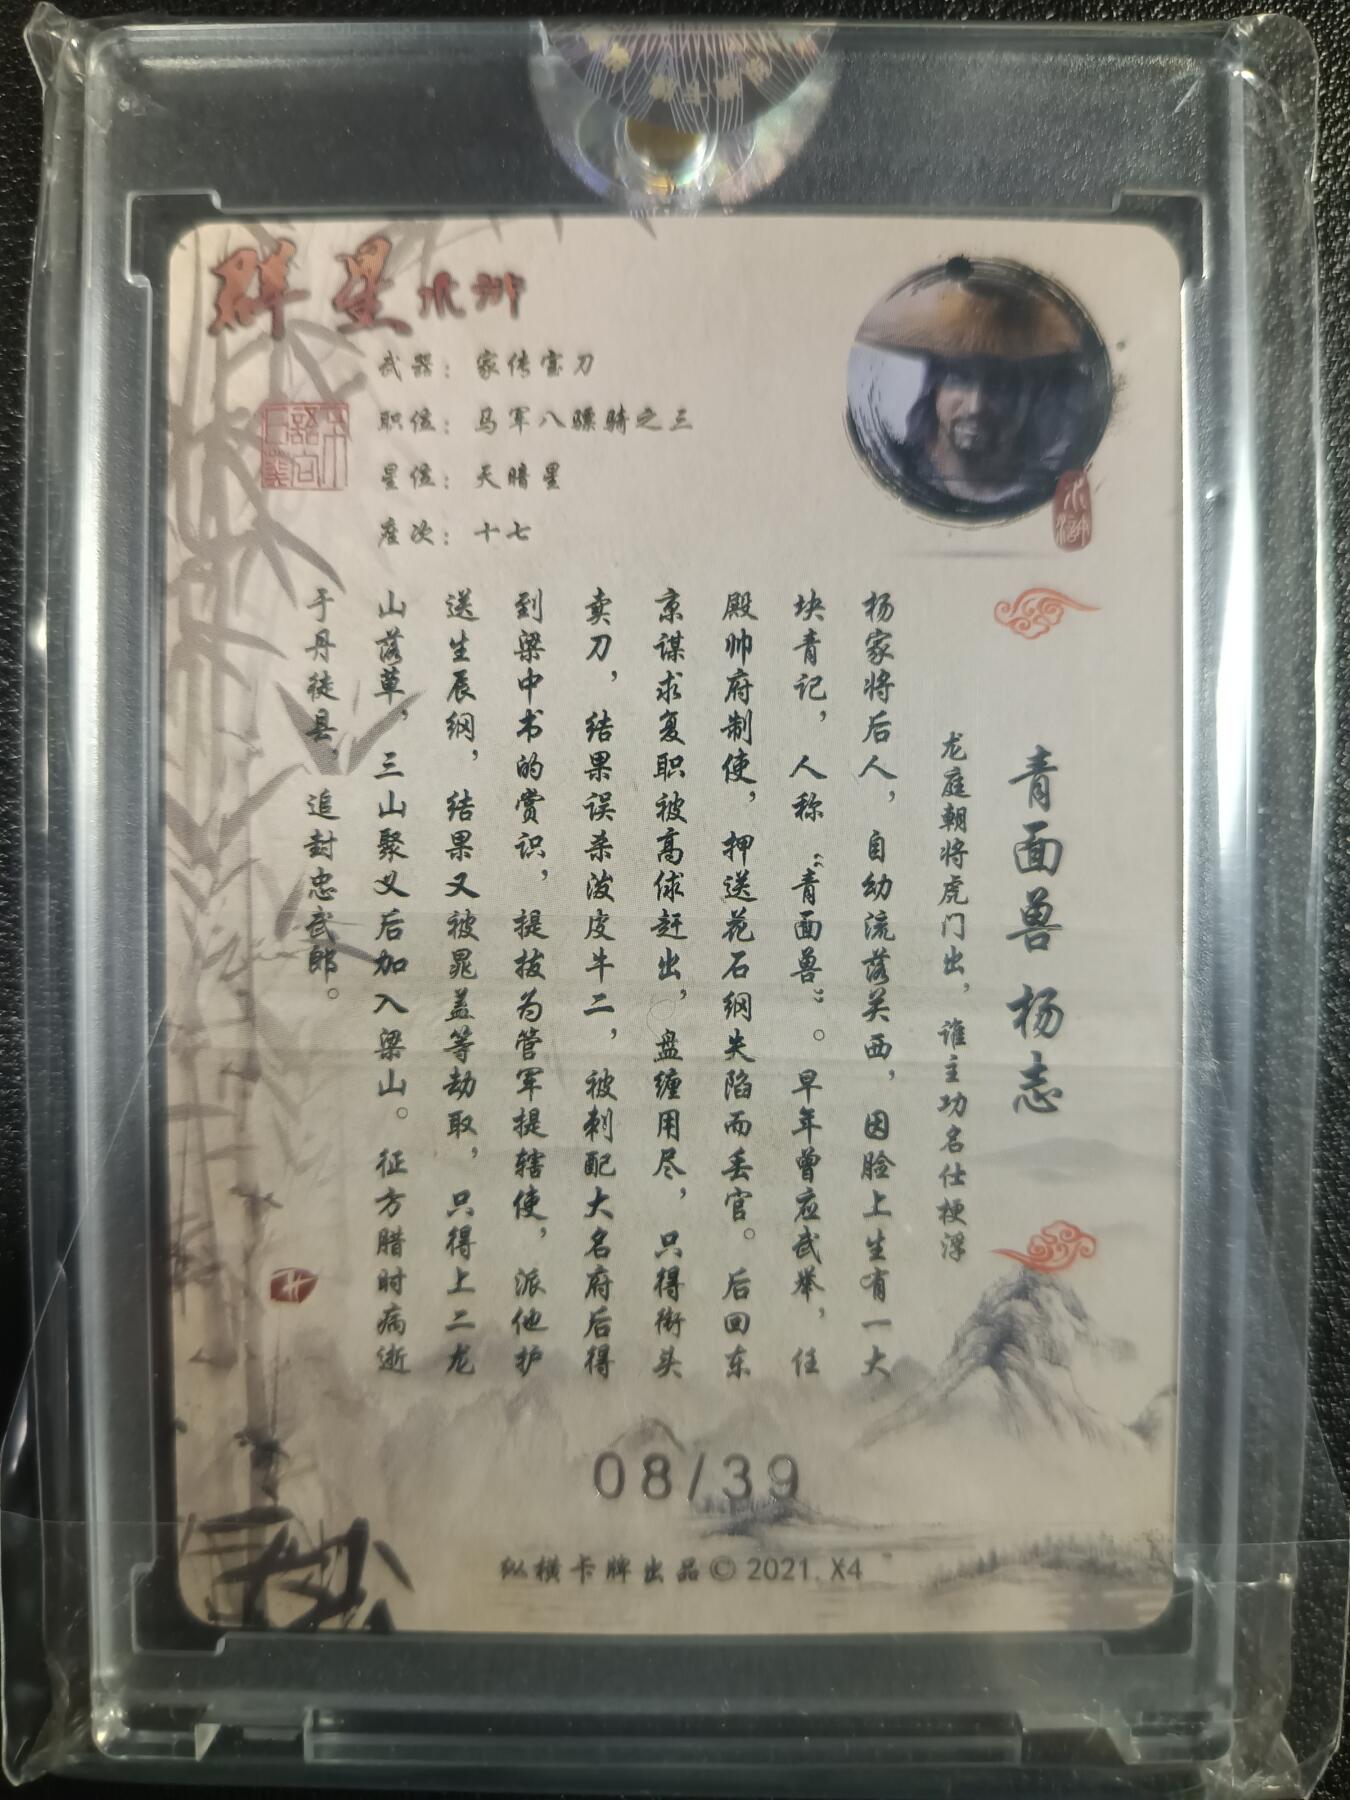 群星水浒
武器：家传宝刀
职位：马军八骠骑之三
星位：天暗星
座次：十七
水浒
青面兽 杨志
龙庭朝将虎门出，谁主功名仕梗浮
杨家将后人，自幼流落关西，因脸上生有一大
块青记，人称“青面兽”。早年曾应武举，任
殿帅府制使，押送花石纲失陷而丢官。后回东
京谋求复职被高俅赶出，盘缠用尽，只得街头
卖刀，结果误杀泼皮牛二，被刺配大名府后得
到梁中书的赏识，提拔为管军提辖使，派他护
送生辰纲，结果又被晁盖等劫取，只得上二龙
山落草，三山聚义后加入梁山。征方腊时病逝
于丹徒县，追封忠武郎。
08/39
纵横卡牌出品© 2021. X4